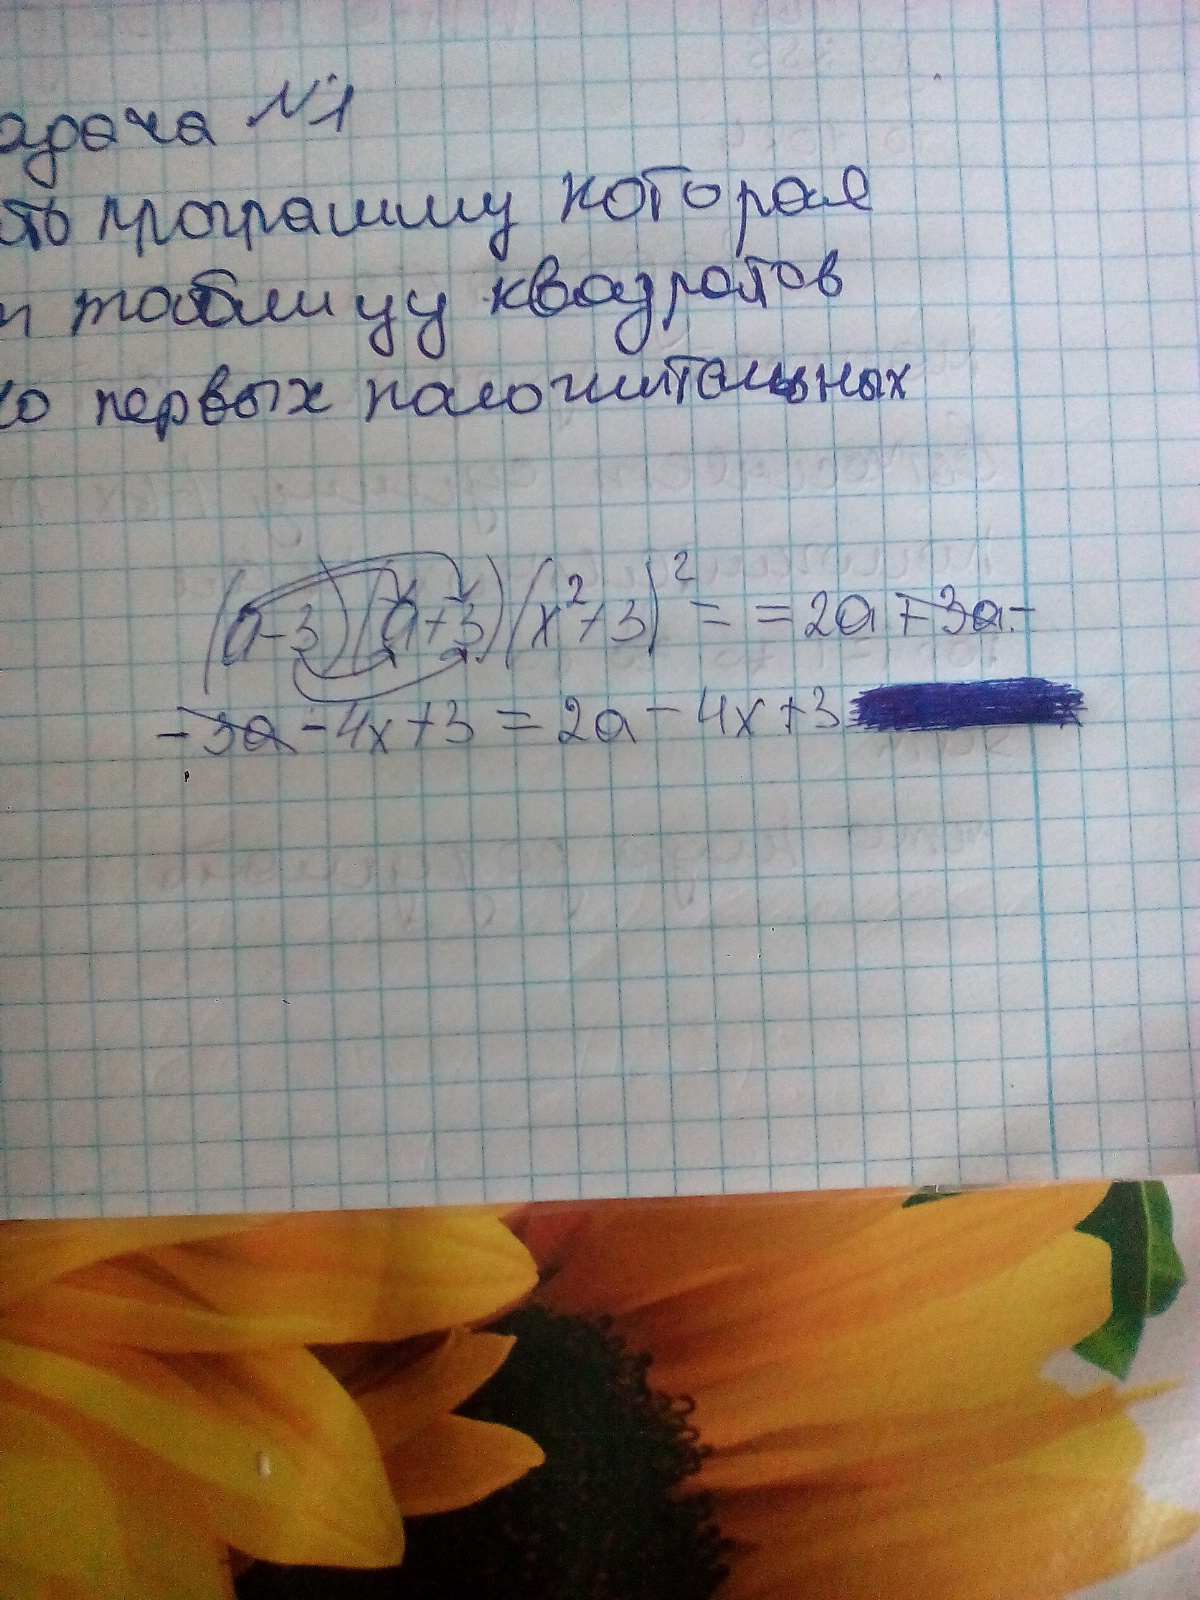 адача №1
ть программу которая
и таблицу квадратов
го первых положительных
(a-3)(a+3)(x²+3)² = =2a+3a-
-3a-4x+3=2a-4x+3